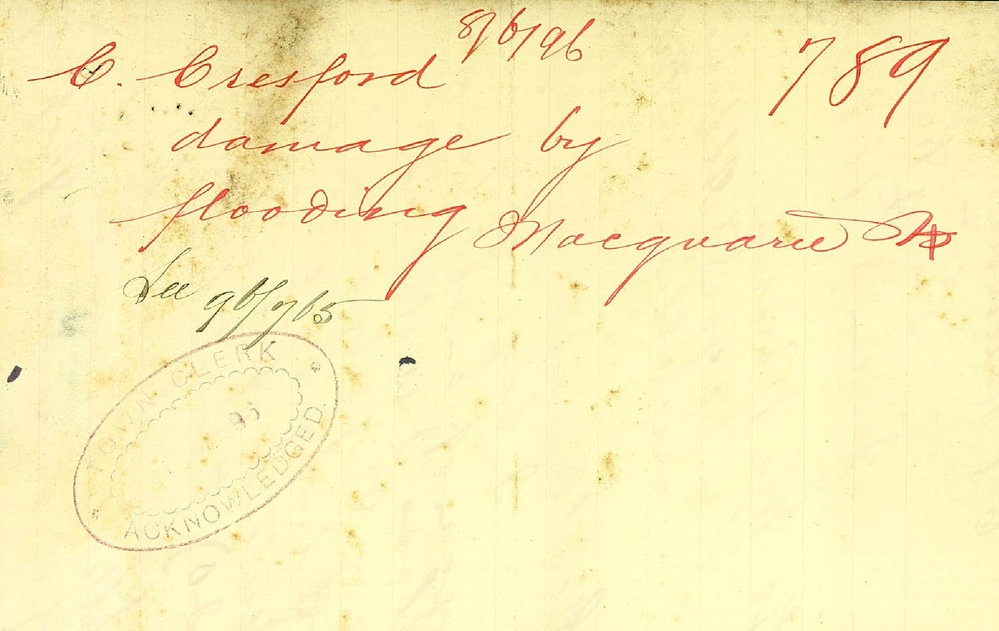 8/6/96
C. Cresford 789
damage by
flooding Macquarie St
See 96/765
TOWN CLERK
96
ACKNOWLEDGED.